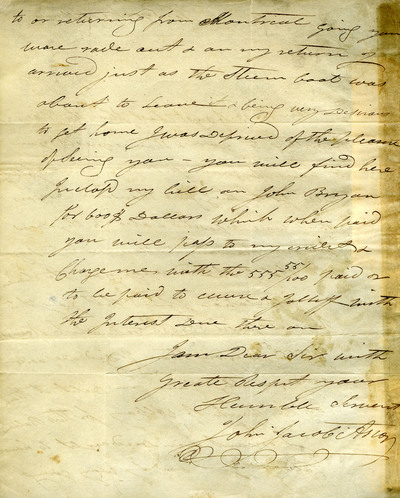 to or returning from Montreal going you
ware rode out & on my return I
arrived just as the Steem boat was
about to Leave & being very Desirous
to get home I was Deprived of the pleasure
of Seeing you – you will find here
Inclosd my bill on John Bryan
for 600$ Dollars which when paid
you will pass to my credit &
Charge me with the 555 55/100 paid or
to be paid to
the Interest Due there on
I am Dear Sir with
Greate Respet your
Humble Servent
John Jacob Astor